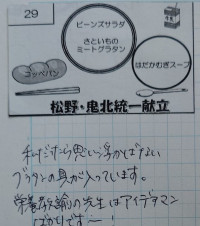 29
ビーンズサラダ
さといもの
ミートグラタン
コッペパン
はだかむぎスープ
松野・鬼北統一献立
私だったら思い浮かばない
グラタンの具が入っています。
栄養教諭の先生はアイデアマン
ばかりです〜!